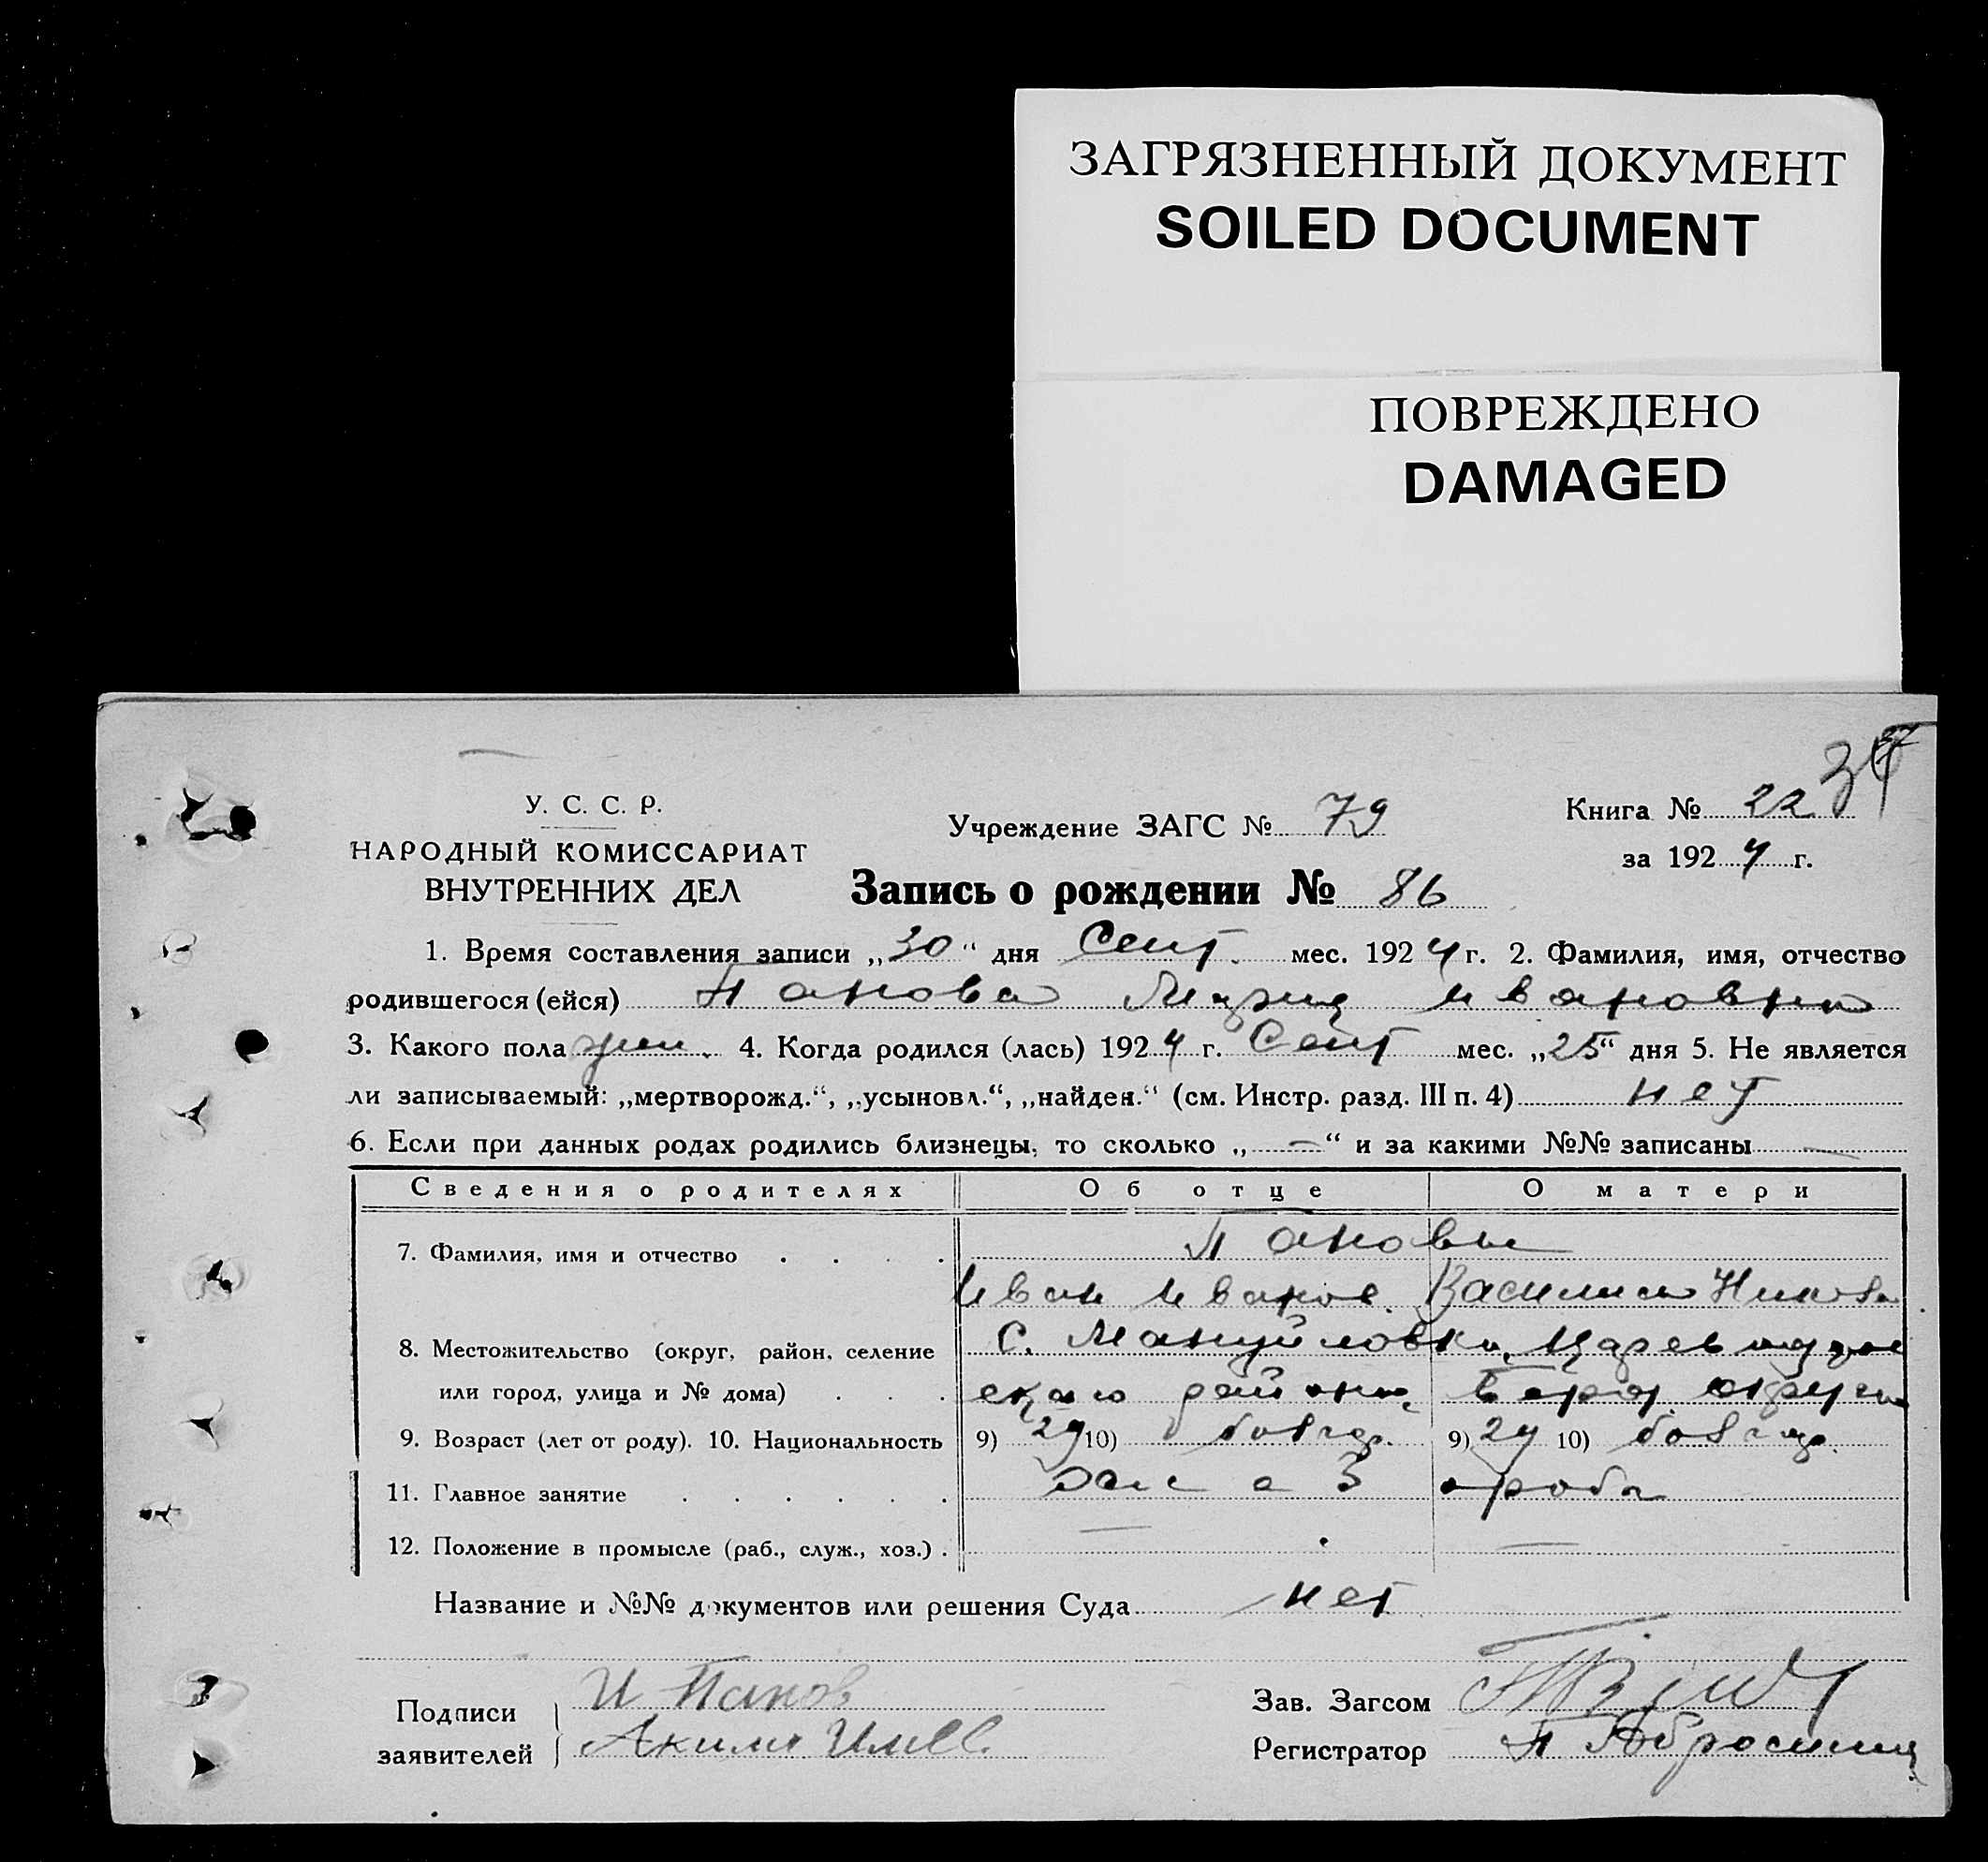 ЗАГРЯЗНЕННЫЙ ДОКУМЕНТ
SOILED DOCUMENT
ПОВРЕЖДЕНО
DAMAGED
У. С. С. Р.
НАРОДНЫЙ КОМИССАРИАТ
ВНУТРЕННИХ ДЕЛ
Учреждение ЗАГС № 79
Книга № 22
за 1924 г.
Запись о рождении № 86
1. Время составления записи „30“ дня Сент. мес. 1924 г. 2. Фамилия, имя, отчество
родившегося (ейся) Панова Мария Ивановна
3. Какого пола жен. 4. Когда родился (лась) 1924 г. Сент мес. „25“ дня 5. Не является
ли записываемый: „мертворожд.“, „усыновл.“, „найден.“ (см. Инстр. разд. III п. 4) нет
6. Если при данных родах родились близнецы, то сколько „—“ и за какими №№ записаны —
Сведения о родителях Об отце О матери
7. Фамилия, имя и отчество . . . . Пановы
Иван Иванов. Василиса Никол
8. Местожительство (округ, район, селение С. Мануйловка, Цареводар
или город, улица и № дома) . . . ского района, Берд. округа
9. Возраст (лет от роду). 10. Национальность 9) 29 10) болгар. 9) 24 10) болгар.
11. Главное занятие . . . . . . хлеб
12. Положение в промысле (раб., служ., хоз.) . — —
Название и №№ документов или решения Суда нет
Подписи заявителей И Панов
Аким
Зав. Загсом
Регистратор П Абросимов